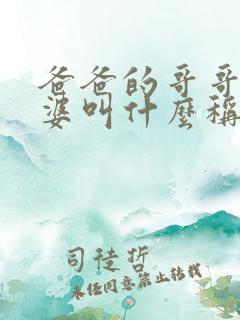 爸爸的哥哥
婆叫什麼稱
司徒哲
品
未经同意禁止转载